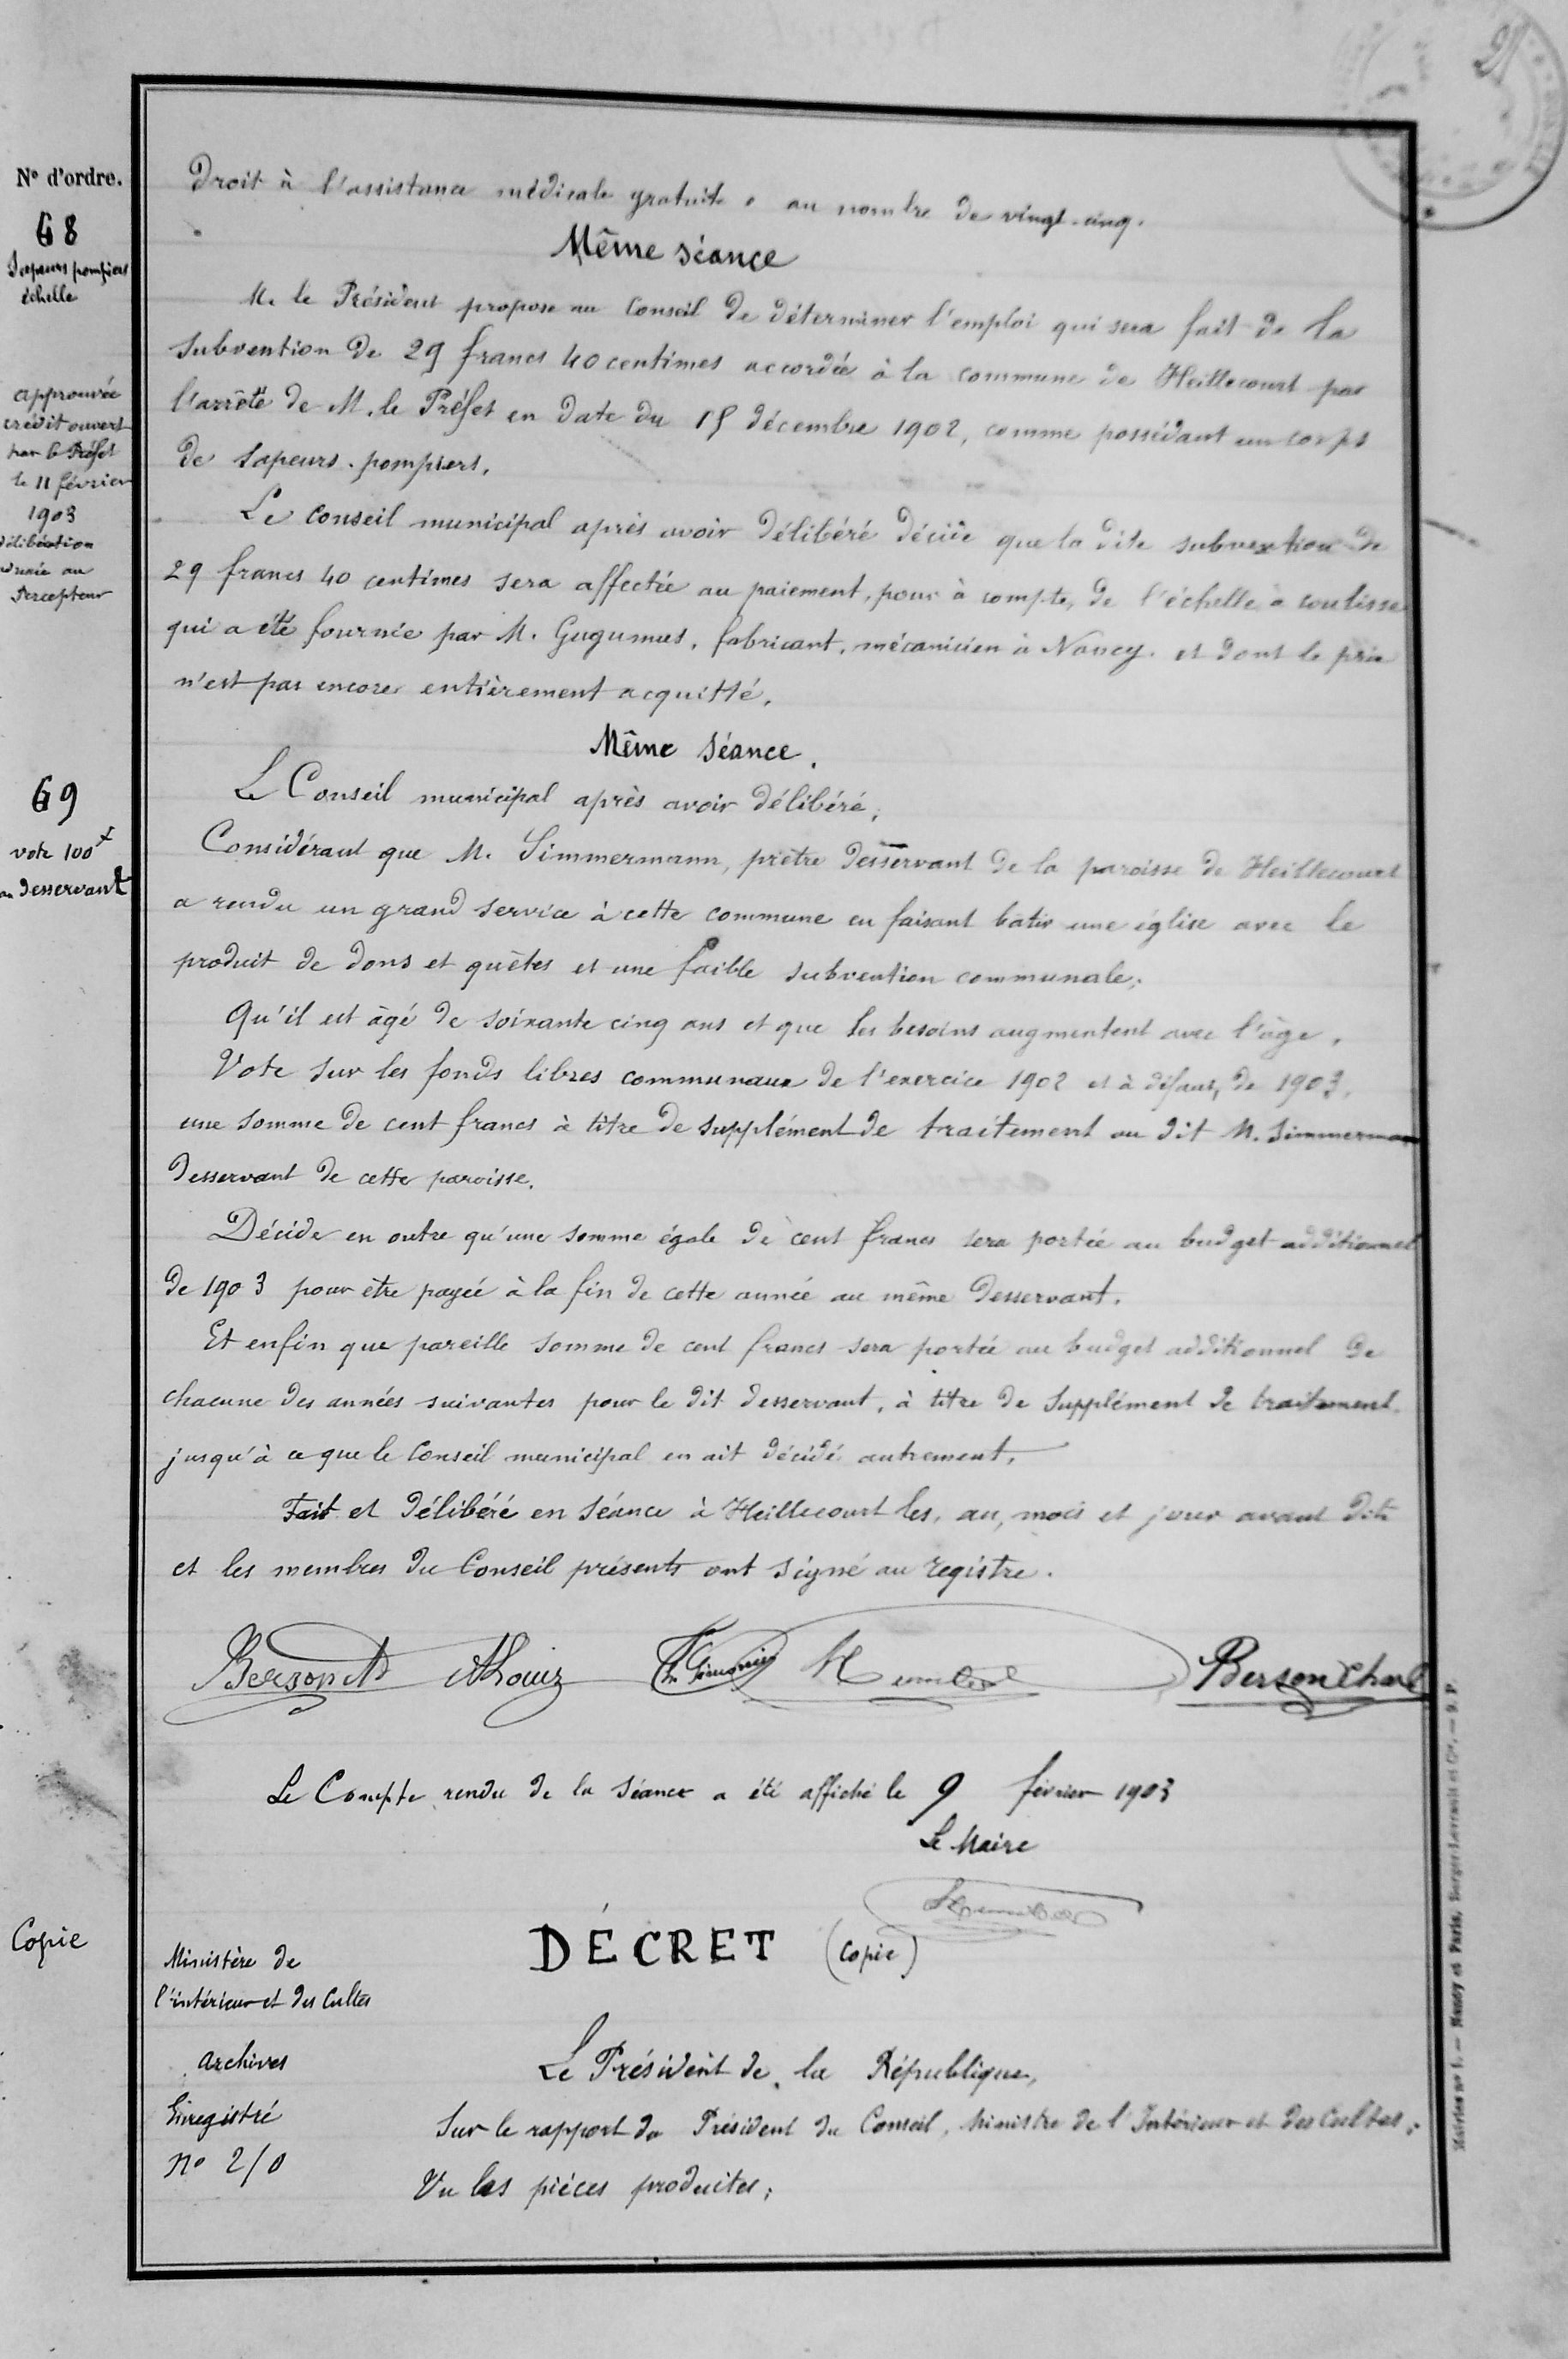 21
N° d'ordre.
Droit à l'assistance médicale gratuite au nombre de vingt-cinq.
Même séance
68
Sapeurs pompiers
échelle
M. le Président propose au Conseil de déterminer l'emploi qui sera fait de la
subvention de 29 francs 40 centimes accordée à la commune de Heillecourt par
l'arrêté de M. le Préfet en date du 15 décembre 1902, comme possédant un corps
de sapeurs-pompiers.
approuvée
crédit ouvert
par le Préfet
le 11 février
1903
délibération
au
Percepteur
Le Conseil municipal après avoir délibéré décide que la dite subvention de
29 francs 40 centimes sera affectée au paiement, pour à compte, de l'échelle à coulisse
qui a été fournie par M. Gugumus, fabricant, mécanicien à Nancy. et dont le prix
n'est pas encore entièrement acquitté.
Même séance.
69
vote 100f
au desservant
Le Conseil municipal après avoir délibéré,
Considérant que M. Simmermann, prêtre desservant de la paroisse de Heillecourt
a rendu un grand service à cette commune en faisant bâtir une église avec le
produit de dons et quêtes et une faible subvention communale;
Qu'il est âgé de soixante cinq ans et que les besoins augmentent avec l'âge,
Vote sur les fonds libres communaux de l'exercice 1902 et à défaut, de 1903,
une somme de cent francs à titre de supplément de traitement au dit M. Simmermann
desservant de cette paroisse.
Décide en outre qu'une somme égale de cent francs sera portée au budget additionnel
de 1903 pour être payée à la fin de cette année au même desservant.
Et enfin que pareille somme de cent francs sera portée au budget additionnel de
chacune des années suivantes pour le dit desservant, à titre de supplément de traitement
jusqu'à ce que le Conseil municipal en ait décidé autrement.
Fait et délibéré en séance à Heillecourt les, an, mois et jour avant dits
et les membres du Conseil présents ont signé au registre.
Berson
Simonin
Berson Charl
Le Compte rendu de la séance a été affiché le 9 février 1903
Le Maire
Copie
DÉCRET (Copie)
Ministère de
l'intérieur et des Cultes
Archives
Enregistré
N° 210
Le Président de la République,
Sur le rapport du Président du Conseil, Ministre de l'Intérieur et des Cultes,
Vu les pièces produites;
Mairies n° 1. — Nancy et Paris, Berger-Levrault et Cie.